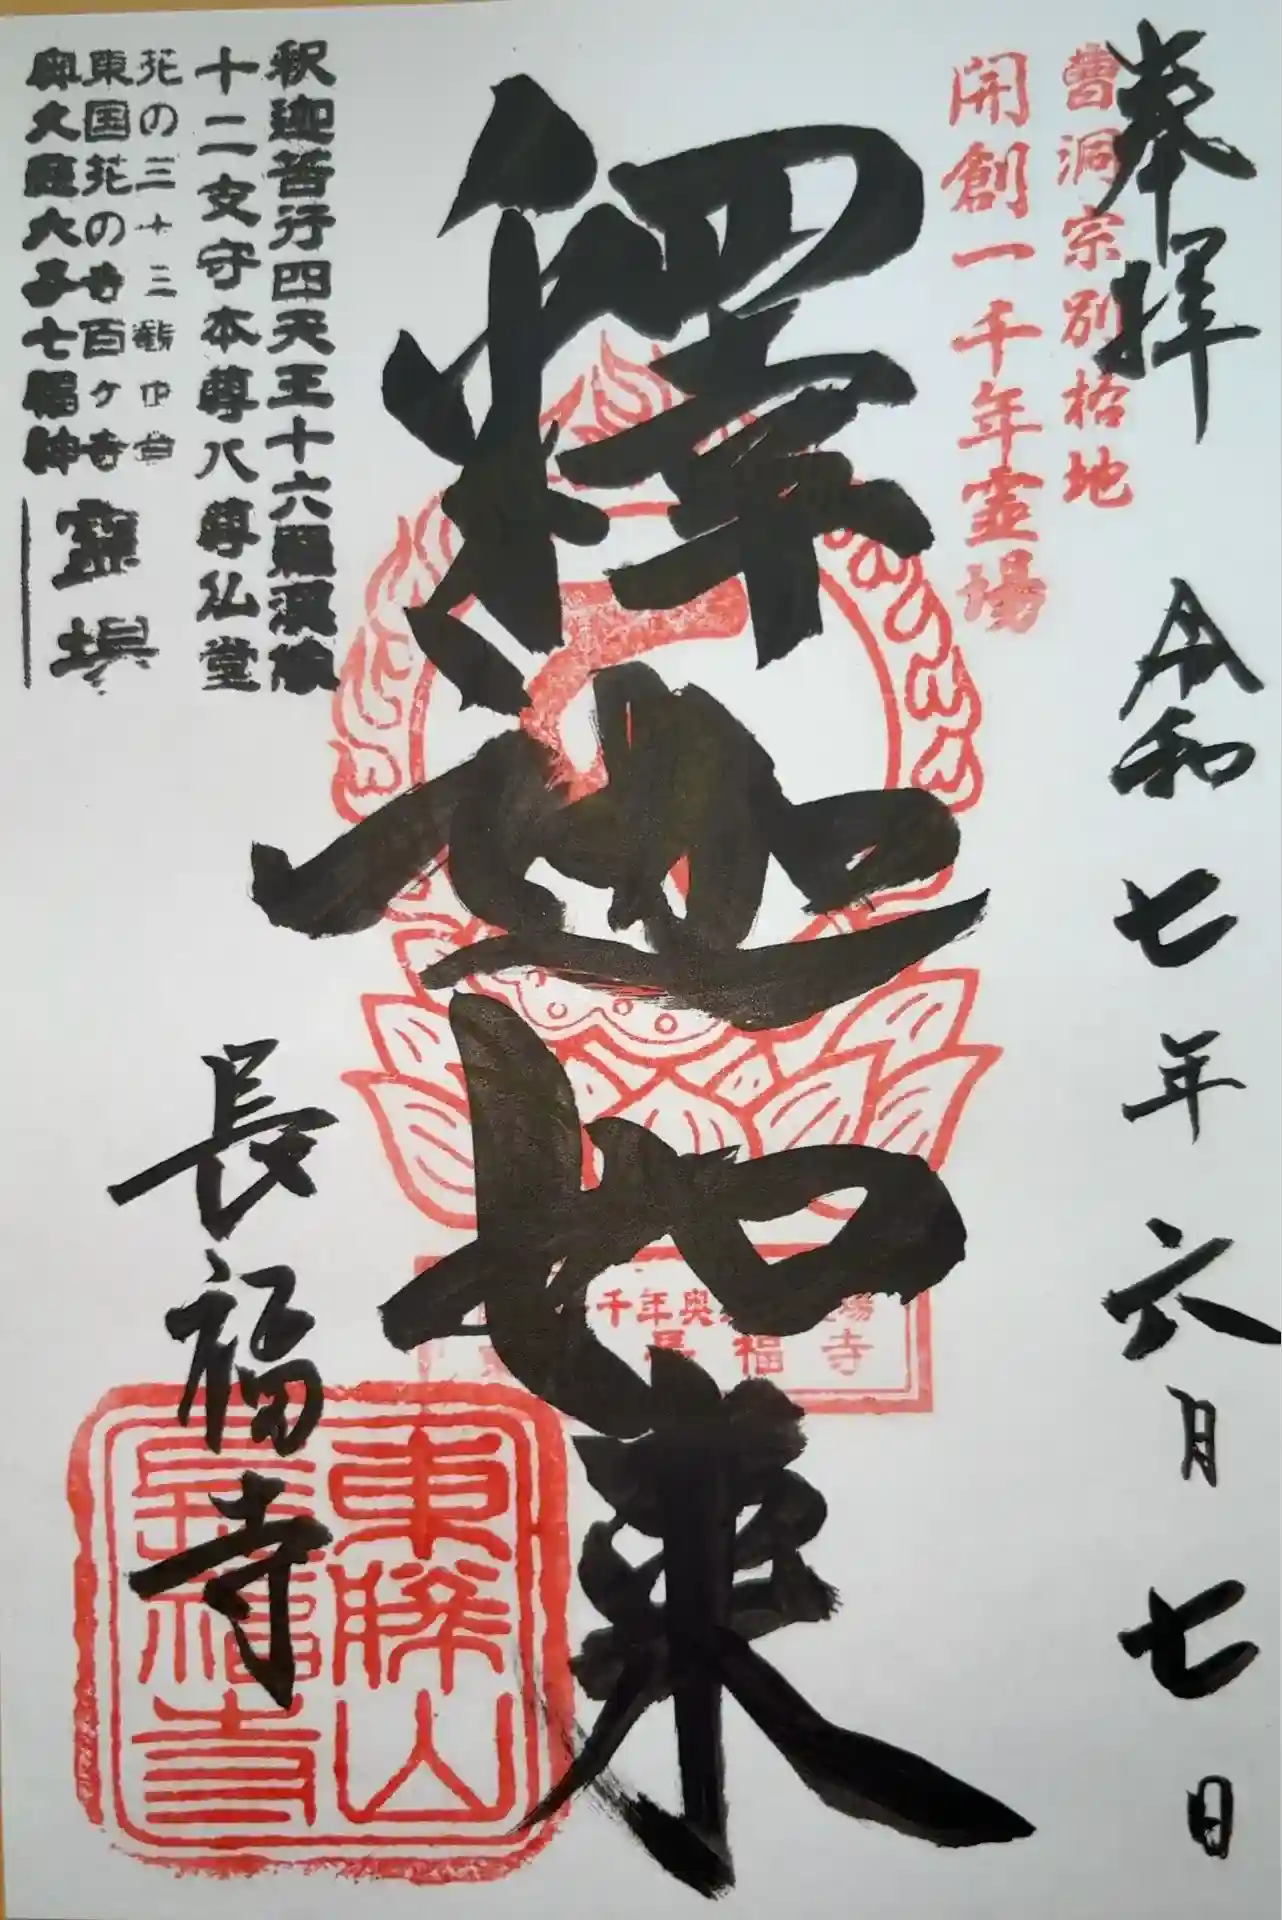 奉拝
令和七年六月七日
曹洞宗別格地
開創一千年霊場
釋迦如来
千年奥
長福寺
釈迦苦行四天王十六羅漢像
十二支守本尊八尊仏堂
花の三十三観音
東国花の寺百ヶ寺
奥久慈大子七福神
霊場
長福寺
東勝山
長福寺